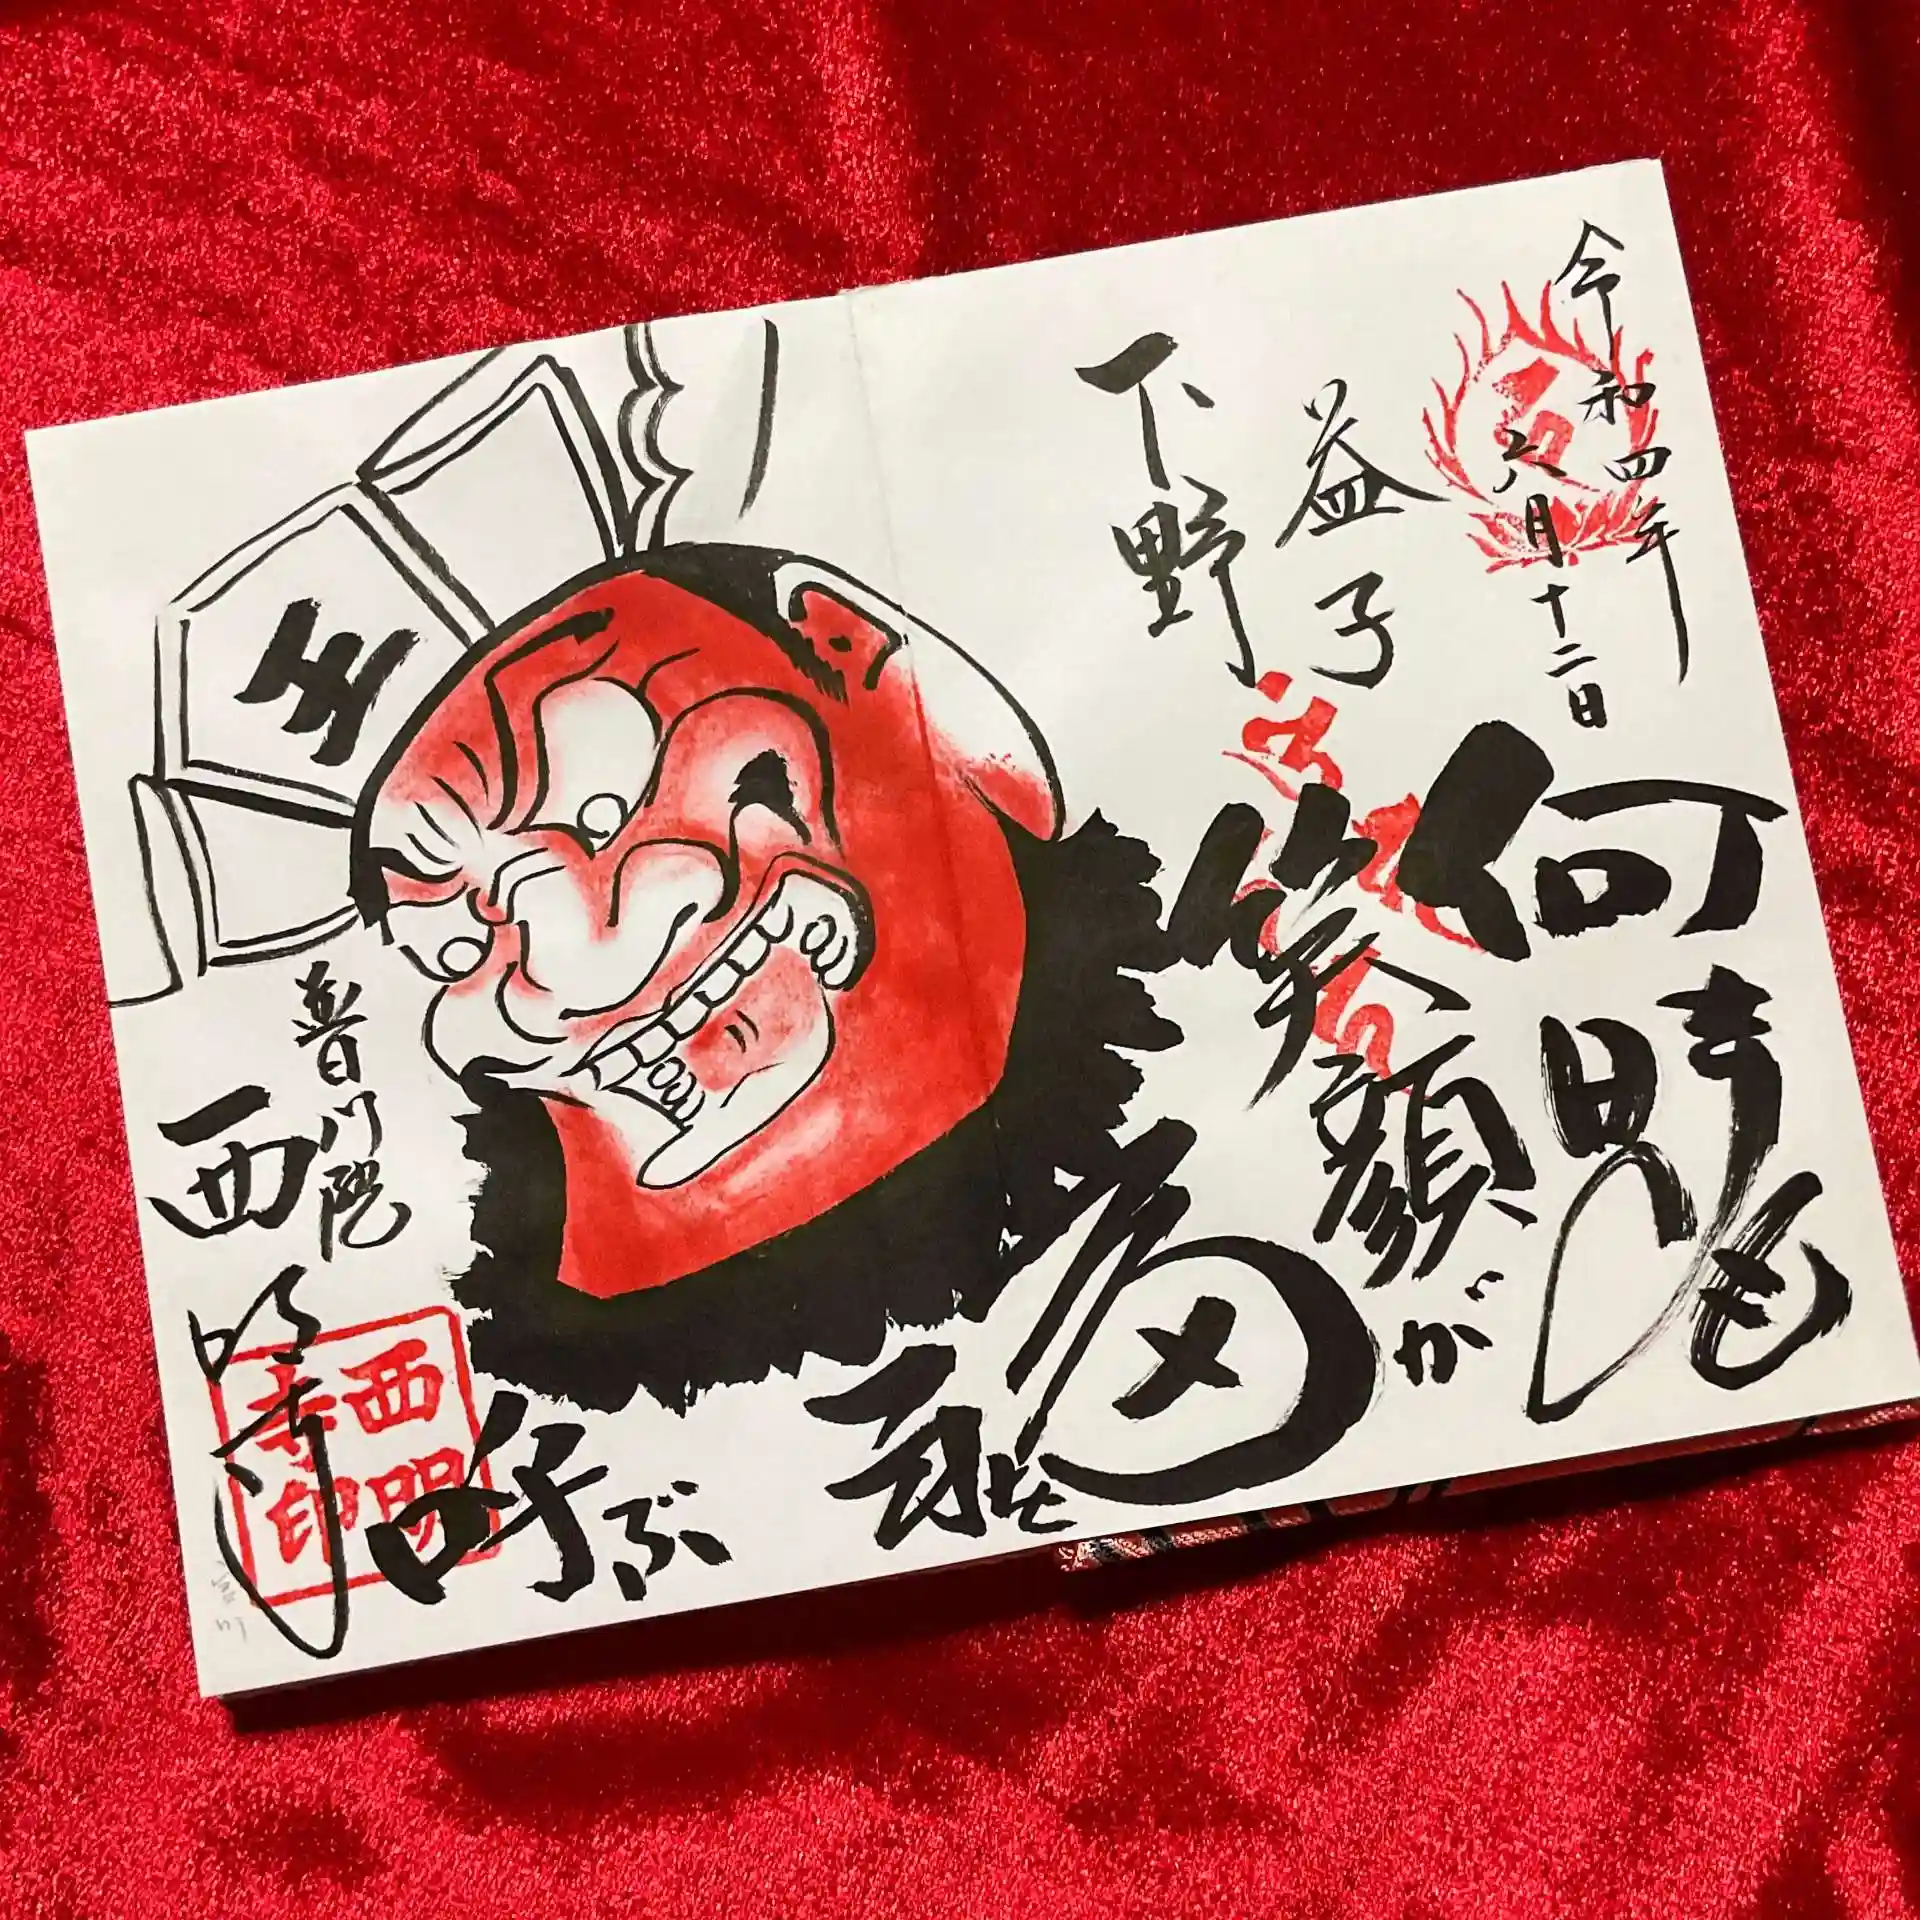 令和四年
六月十二日
益子
下野
何時も
笑顔が
福を
呼ぶ
王
普門院
西明寺
西明
寺印